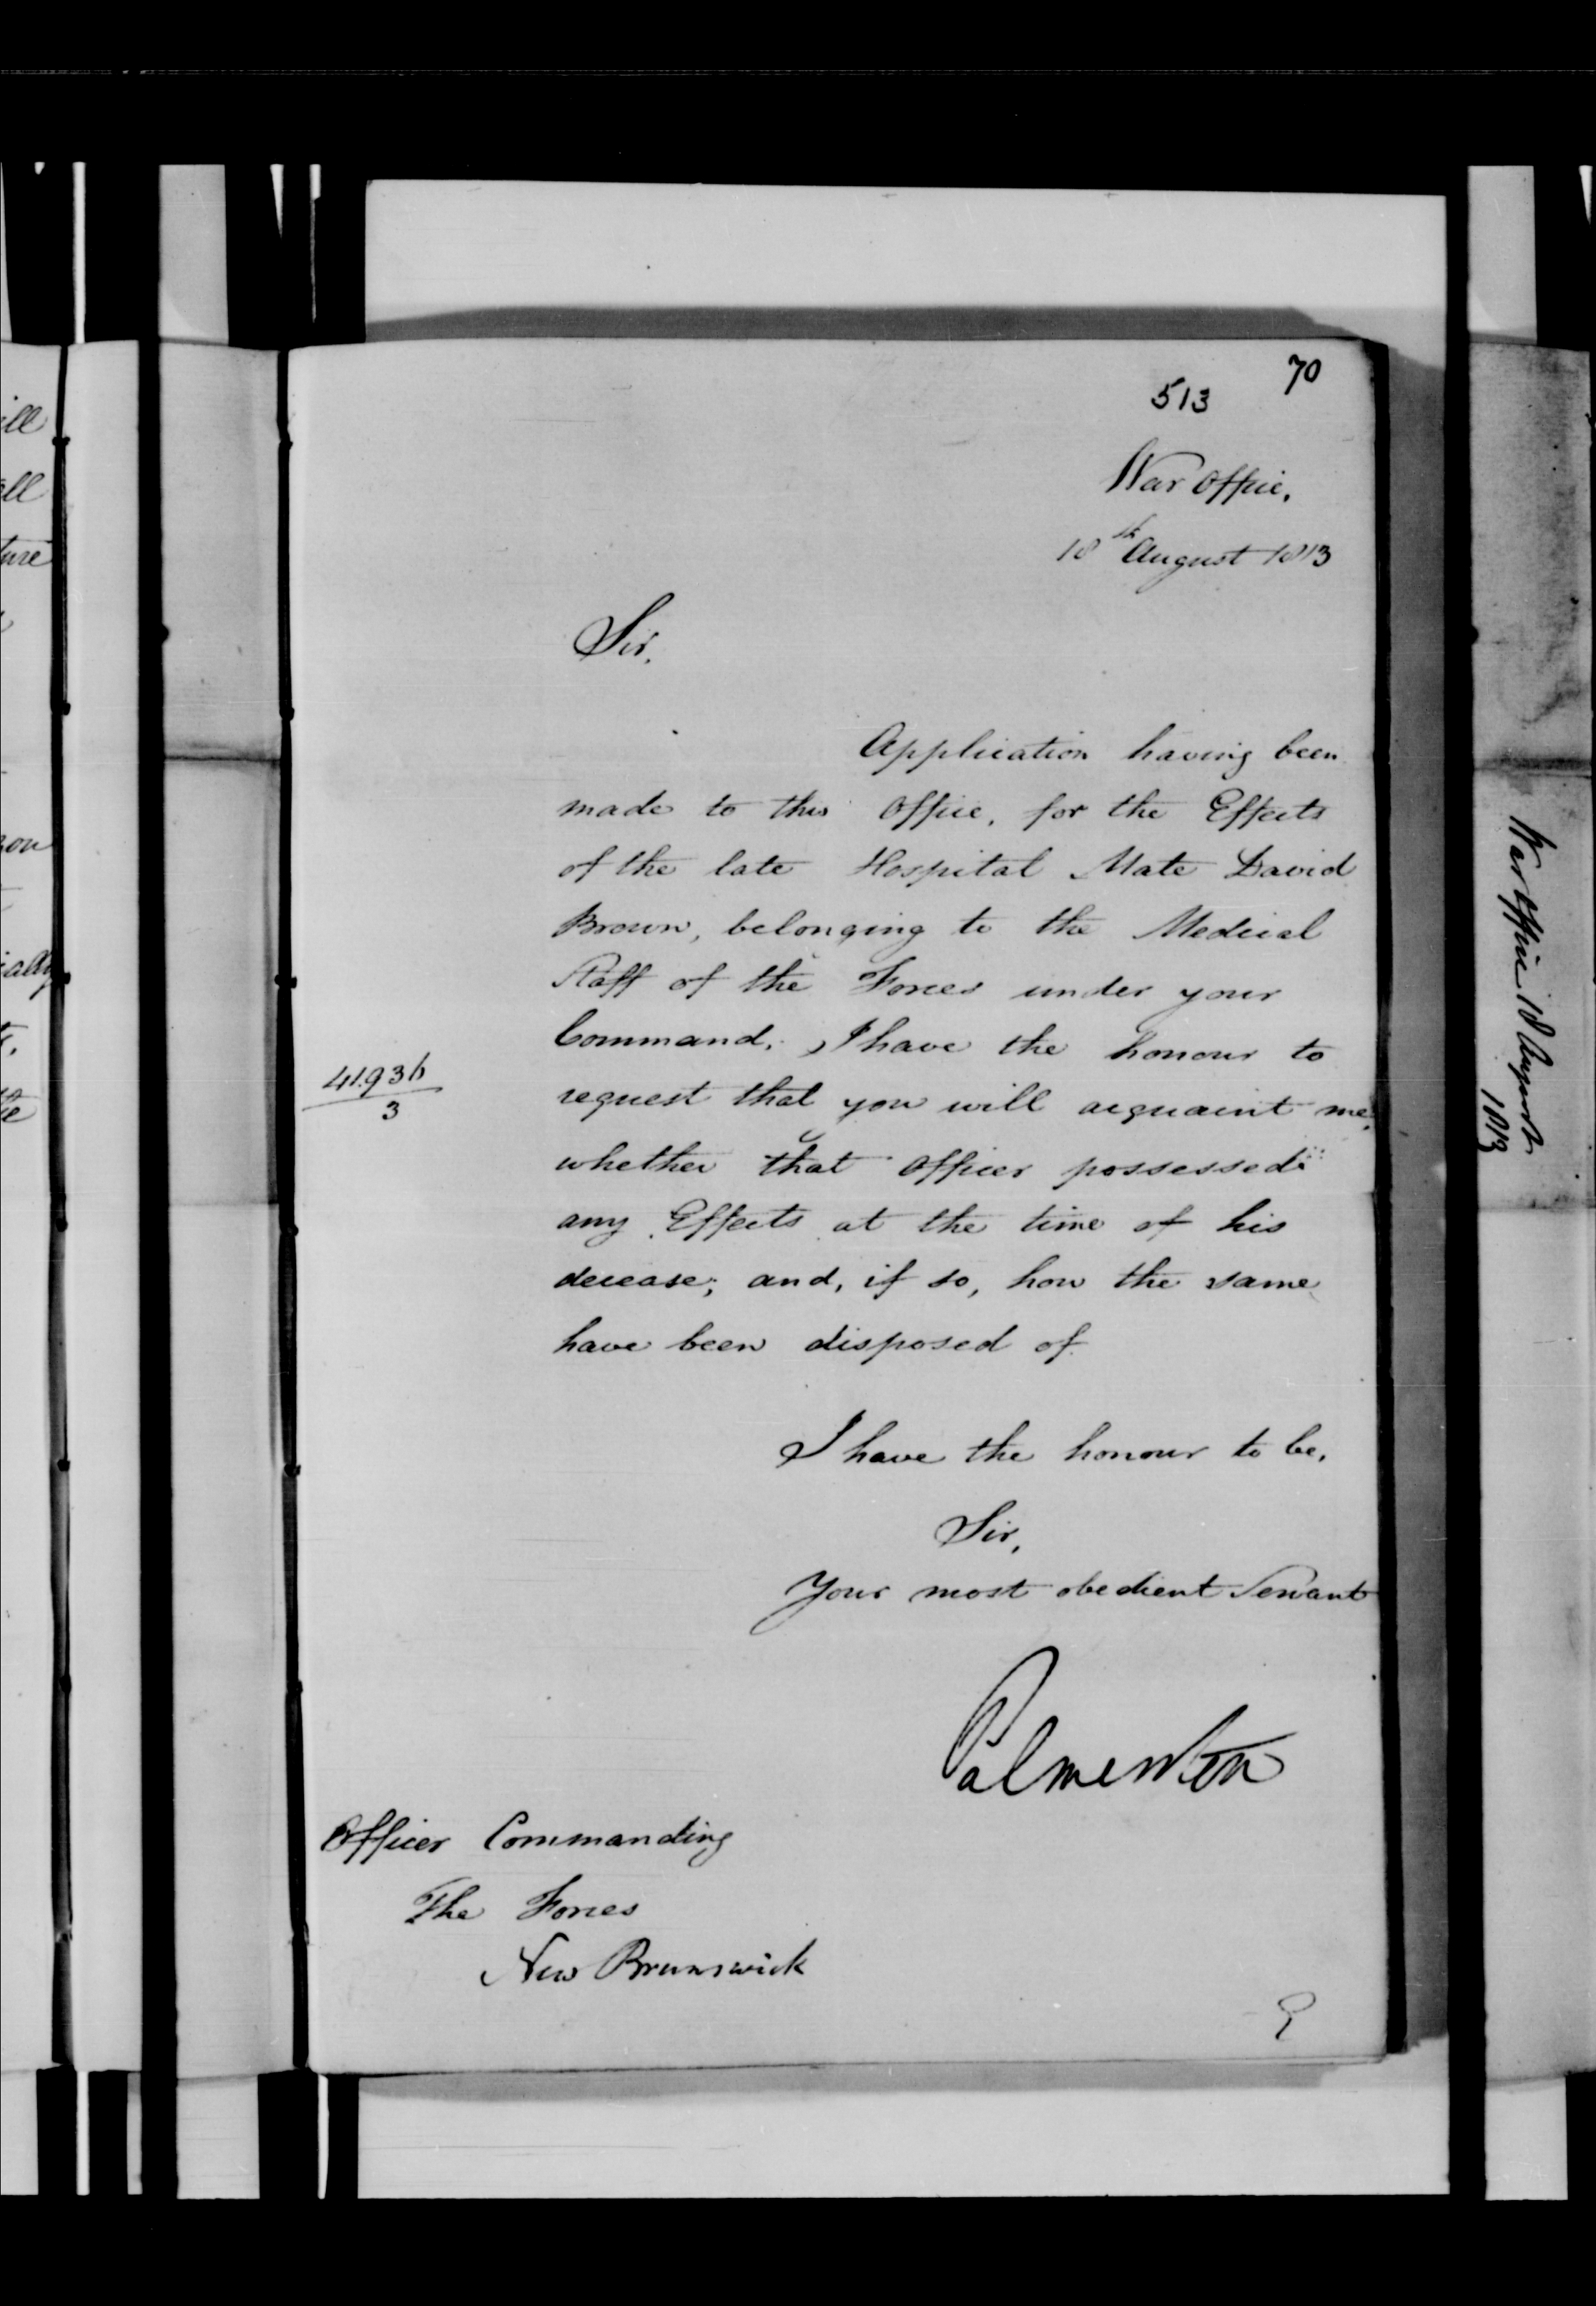 70
513
War Office,
18th August 1813
Sir,
Application having been
made to this Office, for the Effects
of the late Hospital Mate David
Brown, belonging to the Medical
Staff of the Forces under your
Command. I have the honour to
41.936
3
request that you will acquaint me,
whether that Officer possessed
any Effects at the time of his
decease; and, if so, how the same
have been disposed of.
I have the honour to be,
Sir,
Your most obedient Servant
Palmerston
Officer Commanding
The Forces
New Brunswick
War Office 18 August
1813
ill
ture